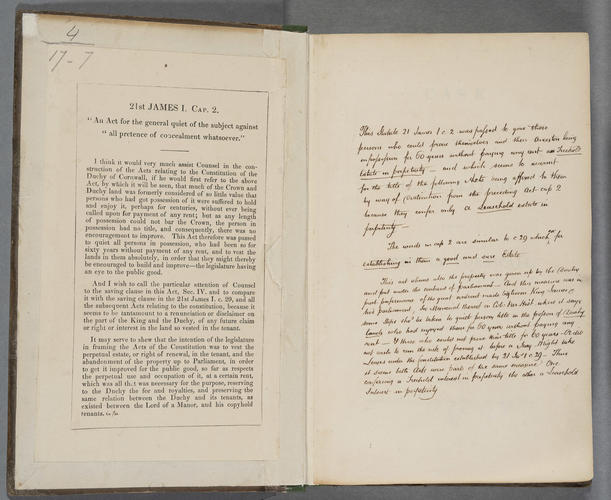 4
17-7
21st JAMES I. CAP. 2.
"An Act for the general quiet of the subject against
" all pretence of concealment whatsoever."
I think it would very much assist Counsel in the con-
struction of the Acts relating to the Constitution of the
Duchy of Cornwall, if he would first refer to the above
Act, by which it will be seen, that much of the Crown and
Duchy land was formerly considered of so little value that
persons who had got possession of it were suffered to hold
and enjoy it, perhaps for centuries, without ever being
called upon for payment of any rent; but as any length
of possession could not bar the Crown, the person in
possession had no title, and, consequently, there was no
encouragement to improve. This Act therefore was passed
to quiet all persons in possession, who had been so for
sixty years without payment of any rent, and to vest the
lands in them absolutely, in order that they might thereby
be encouraged to build and improve—the legislature having
an eye to the public good.
And I wish to call the particular attention of Counsel
to the saving clause in this Act, Sec. IV. and to compare
it with the saving clause in the 21st James I. c. 29, and all
the subsequent Acts relating to the constitution, because it
seems to be tantamount to a renunciation or disclaimer on
the part of the King and the Duchy, of any future claim
or right or interest in the land so vested in the tenant.
It may serve to shew that the intention of the legislature
in framing the Acts of the Constitution was to vest the
perpetual estate, or right of renewal, in the tenant, and the
abandonment of the property up to Parliament, in order
to get it improved for the public good, so far as respects
the perpetual use and occupation of it, at a certain rent,
which was all that was necessary for the purpose, reserving
to the Duchy the fee and royalties, and preserving the
same relation between the Duchy and its tenants, as
existed between the Lord of a Manor, and his copyhold
tenants.
This Statute 21 James 1 c 2 was passed to give those
persons who could prove themselves and their Ancestors being
in possession for 60 years without paying any rent an Freehold
Estate in perpetuity — and which seems to account
for the title of the following Acts being offered to them
by way of distinction from the preceding Act cap 2
because they confer only a Leasehold estate in
perpetuity —
The words in cap 2 are similar to c 29 which for
establishing in them a good and sure Estate
This act shews also the property was given up by the Duchy
and put under the controul of parliament — And this measure was in
part performance of the great
his parliament,
some steps shod be taken to quiet persons title in the possession of Duchy
Lands who had enjoyed them for 60 years without paying any
rent — & those who could not prove their title for 60 years — or did
not wish to run the risk of proving it before a Jury might take
Leases under the constitution established by 21 Jas 1 c 29 — Thus
it seems both Acts were part of the same measure One
conferring a Freehold interest in perpetuity the other a Leasehold
Interest in perpetuity